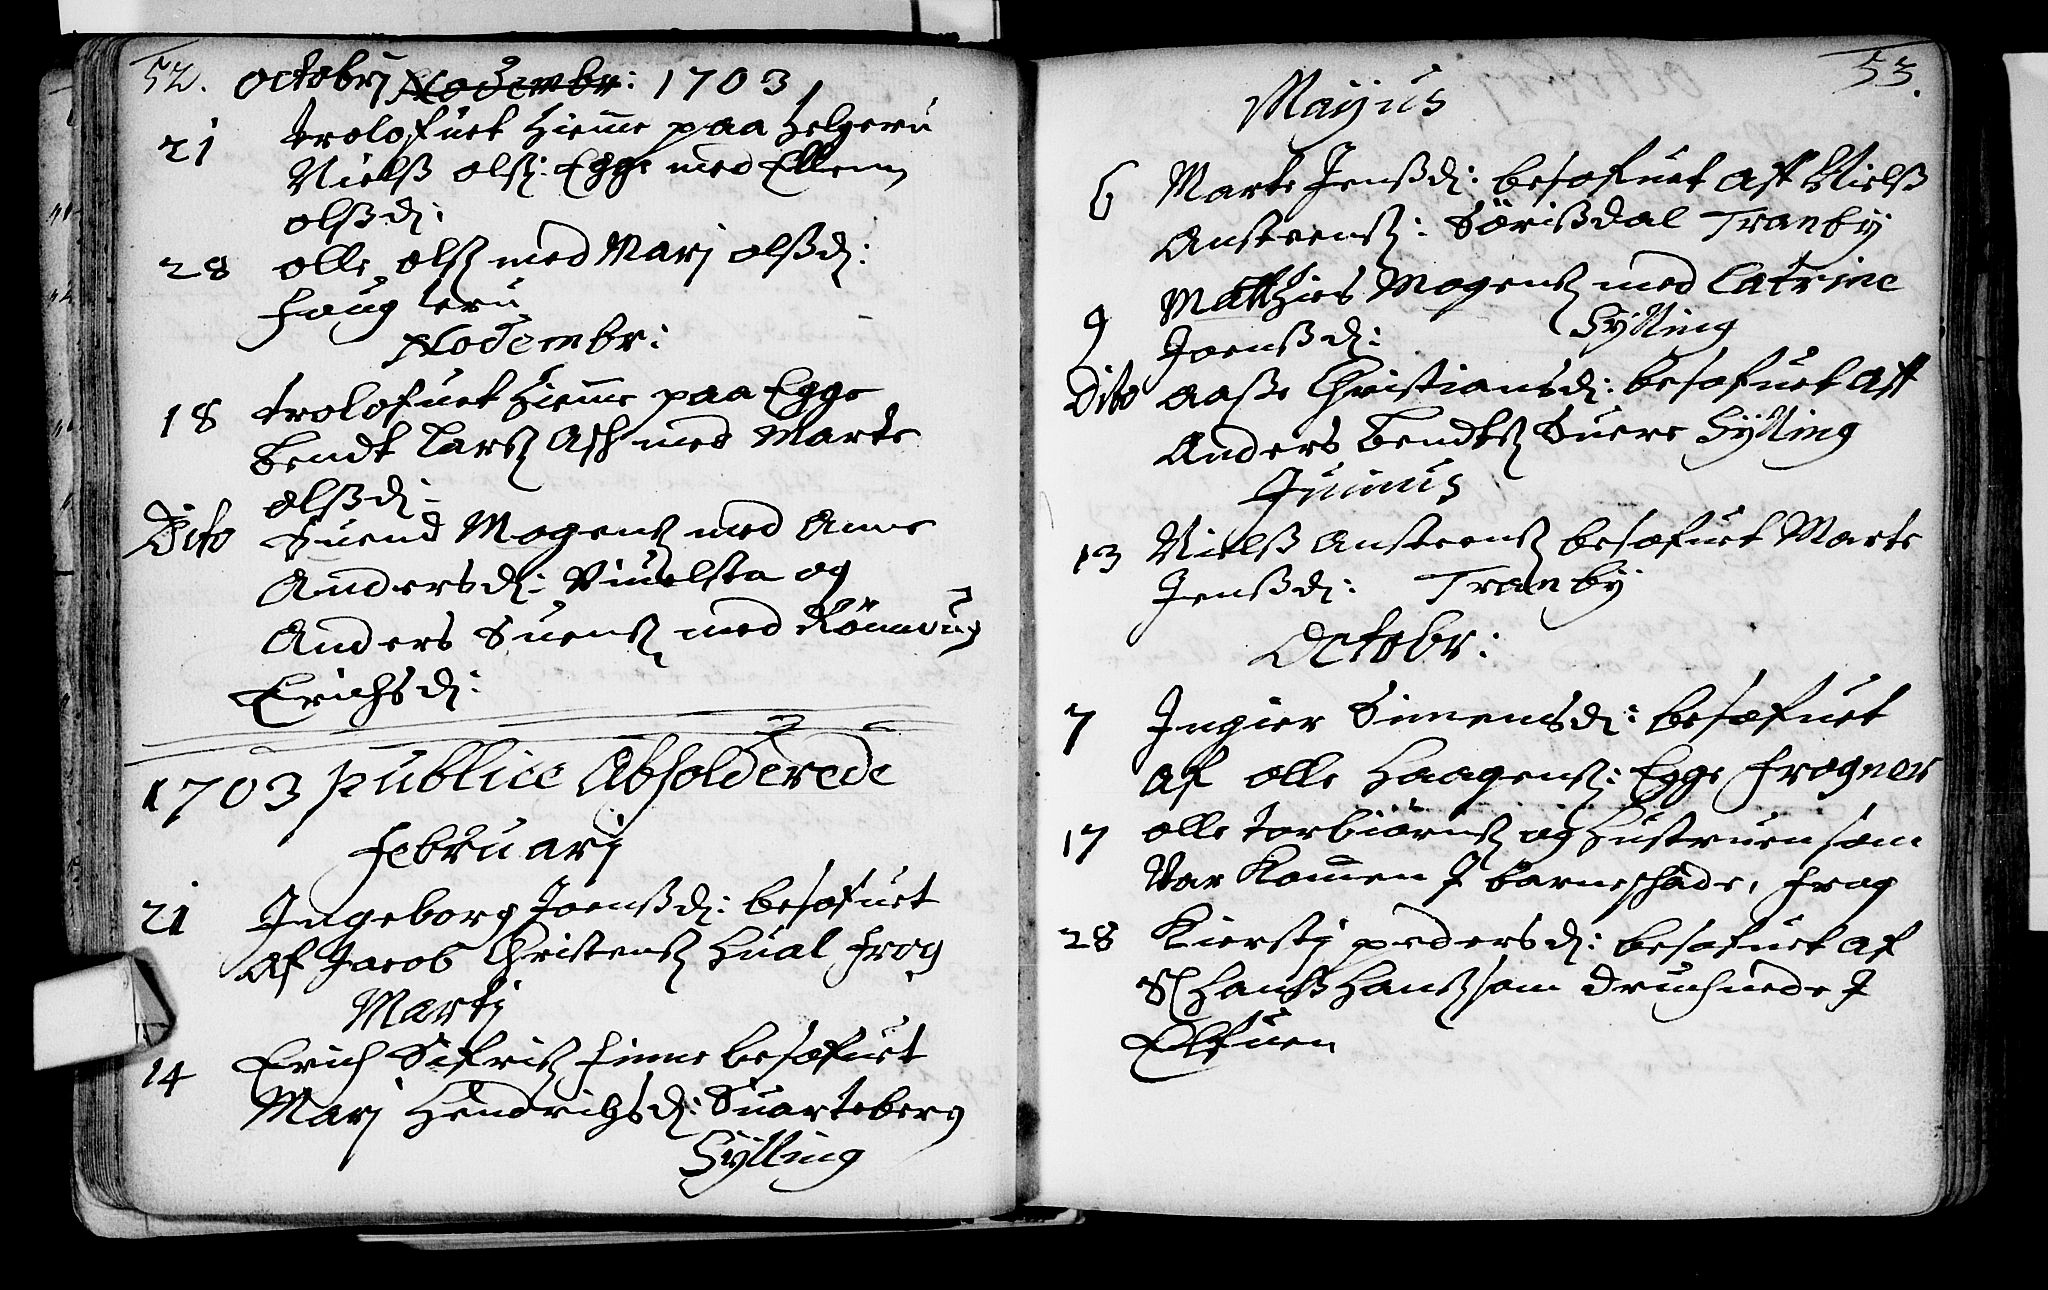 52. Octobrj Novembr: 1703
21 trolofuet Hieme paa Helgeru
Nielß olß: Egge med Ellenn
olßdr:
28 olle olß med Marj olßdr:
Fougleru
Novembr:
18 trolofuet Hieme paa Egge
Bendt Larß Ask med Marte
olßdr:
Dito Suend Mogenß med Anne
Andersdr: Viuelsta og
Anders Suenß med Rönnoug
Erichsdr:
1703 publice Absolverede
Februarj
21 Ingeborg Joenßdr: besofuet
af Jacob Christenß Hual Frog
Martj
14 Erich Sifriß Finne besofuet
Marj Hendrichsdr: Suarteberg
Sylling
53.
Maijus
6 Marte Jenßdr: besofuet aff Nielß
Ansteenß: Sörißdal Tranby
9 Matthies Mogenß med Catrine
Joenßdr: Sylling
Dito Aaße Christiansdr: besofuet aff
Anders Bendtß Suere Sylling
Junius
13 Nielß Ansteenß besofuet Marte
Jenßdr: Tranby
Octobr:
7 Ingier Simensdr: besofuet
af olle Haagenß: Egge Frogner
17 olle Torbiörnß og Hustruen som
Var Kommen J barneschade, Frog
28 Kierstj pedersdr: besofuet af
Sl Hanß Hanß som druchnede J
Elfuen